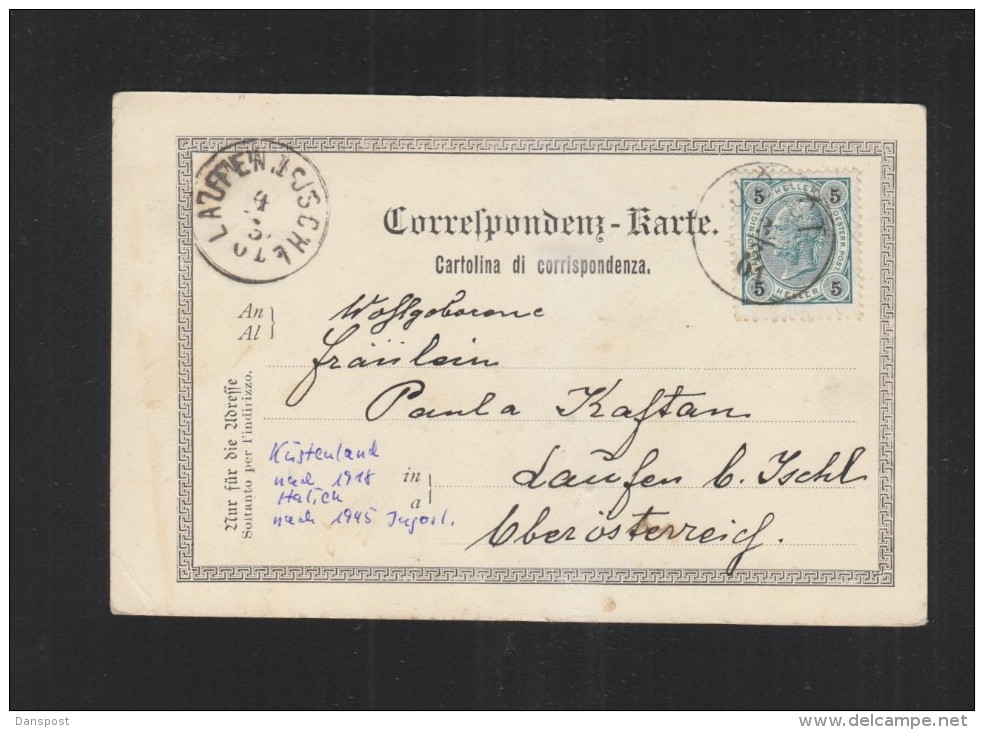 Correspondenz-Karte.
Cartolina di corrispondenza.
An
Al
Wohlgeborene
Fräulein
Paula Kaftan
in
a
Laufen b. Ischl
Oberösterreich.
Nur für die Adresse
Soltanto per l'indirizzo.
Küstenland
nach 1918
Italien
nach 1945 Jugosl.
5 HELLER 5
5 HELLER 5
LAUFEN
ISCHL
4
Danspost
delcampe.net